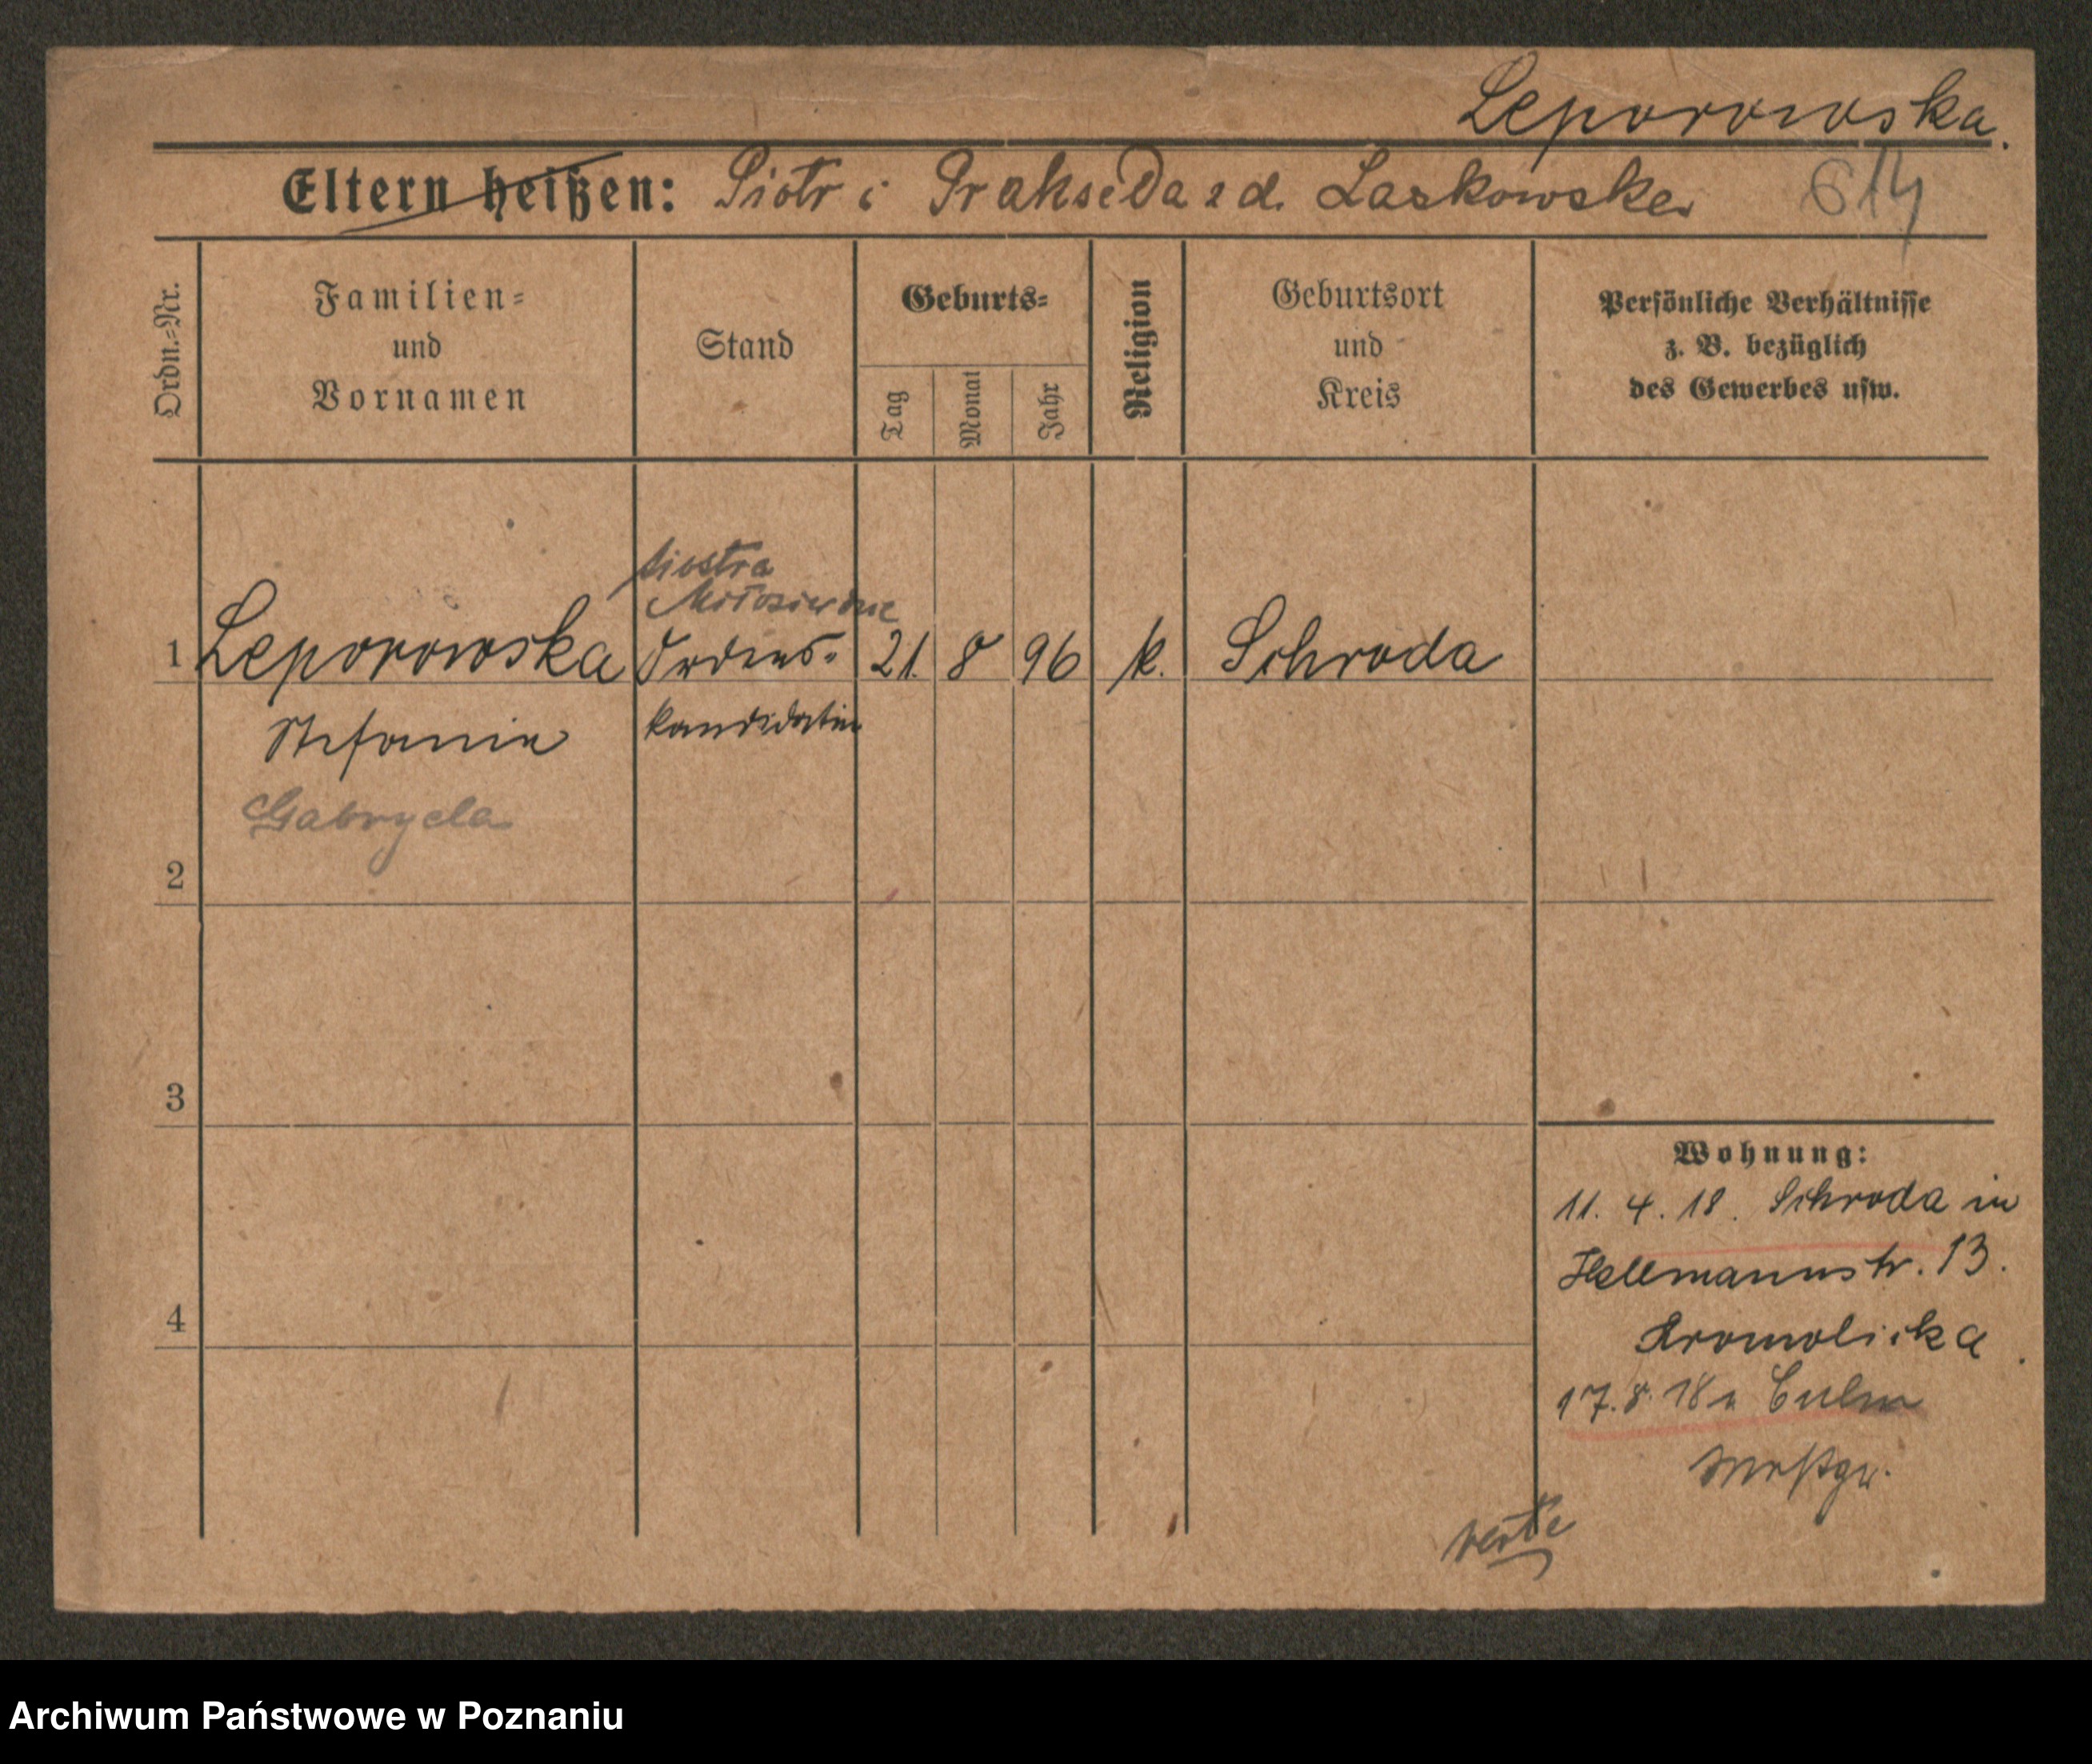 Leporowska.
Eltern heißen: Piotr i Prakseda z d. Laskowska 614
Ordn.-Nr.
Familien-
und
Vornamen
Stand
Geburts-
Tag
Monat
Jahr
Religion
Geburtsort
und
Kreis
Persönliche Verhältnisse
z. B. bezüglich
des Gewerbes usw.
siostra
Miłosierdzia
1 Leporowska Ordens- 21. 8 96 k. Schroda
Stefania kandidatin
Gabryela
2
3
4
Wohnung:
11. 4. 18. Schroda in
Hellmannstr. 13.
Kromolicka
17. 8. 18 n Culm
Westpr.
verte
Archiwum Państwowe w Poznaniu